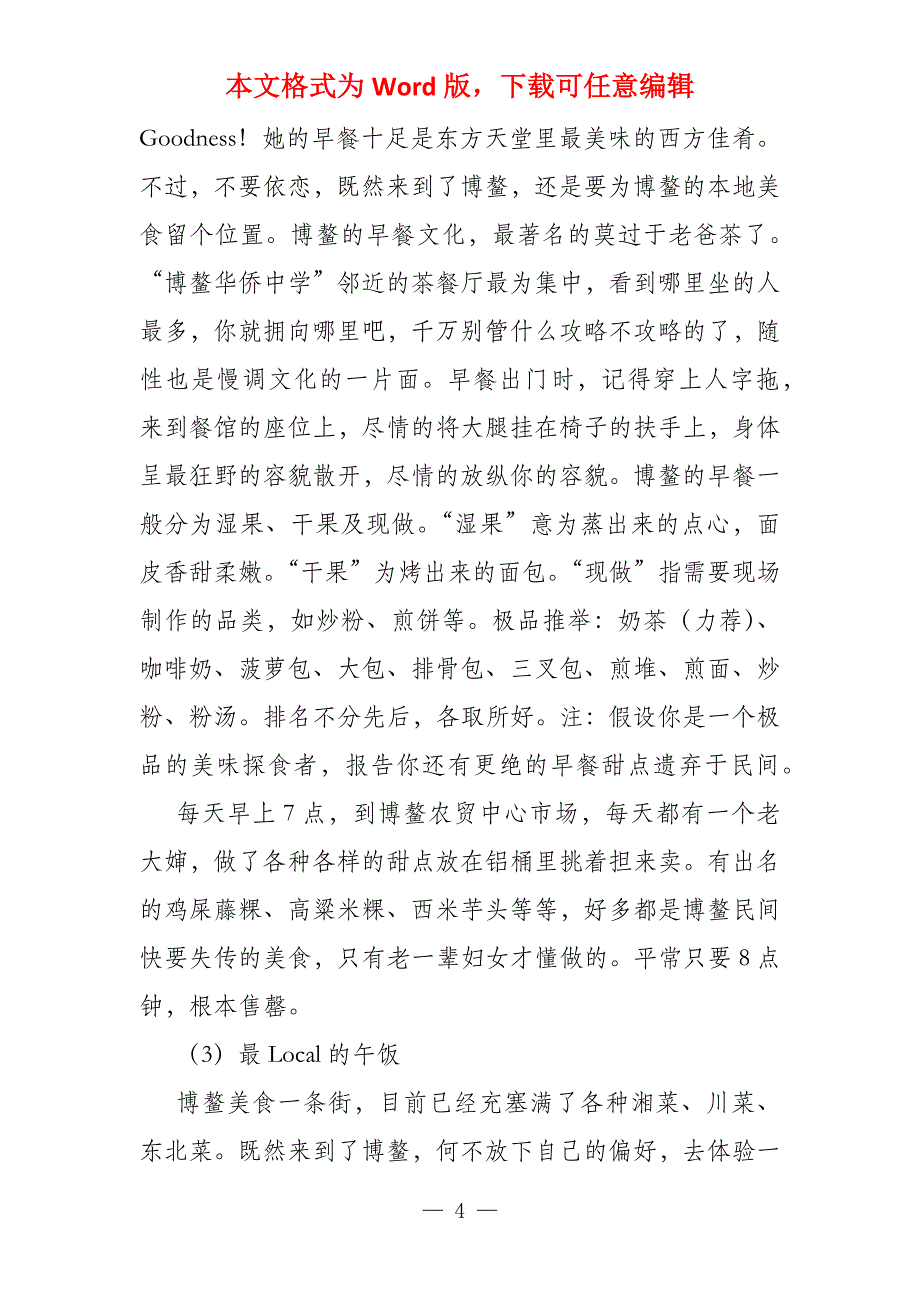 本文格式为 Word 版，下载可任意编辑
Goodness！她的早餐十足是东方天堂里最美味的西方佳肴。
不过，不要依恋，既然来到了博鳌，还是要为博鳌的本地美
食留个位置。博鳌的早餐文化，最著名的莫过于老爸茶了。
“博鳌华侨中学”邻近的茶餐厅最为集中，看到哪里坐的人
最多，你就拥向哪里吧，千万别管什么攻略不攻略的了，随
性也是慢调文化的一片面。早餐出门时，记得穿上人字拖，
来到餐馆的座位上，尽情的将大腿挂在椅子的扶手上，身体
呈最狂野的容貌散开，尽情的放纵你的容貌。博鳌的早餐一
般分为湿果、干果及现做。“湿果”意为蒸出来的点心，面
皮香甜柔嫩。“干果”为烤出来的面包。“现做”指需要现场
制作的品类，如炒粉、煎饼等。极品推举：奶茶（力荐）、
咖啡奶、菠萝包、大包、排骨包、三叉包、煎堆、煎面、炒
粉、粉汤。排名不分先后，各取所好。注：假设你是一个极
品的美味探食者，报告你还有更绝的早餐甜点遗弃于民间。
每天早上 7 点，到博鳌农贸中心市场，每天都有一个老
大婶，做了各种各样的甜点放在铝桶里挑着担来卖。有出名
的鸡屎藤粿、高粱米粿、西米芋头等等，好多都是博鳌民间
快要失传的美食，只有老一辈妇女才懂做的。平常只要 8 点
钟，根本售罄。
（3）最 Local 的午饭
博鳌美食一条街，目前已经充塞满了各种湘菜、川菜、
东北菜。既然来到了博鳌，何不放下自己的偏好，去体验一
— 4 —